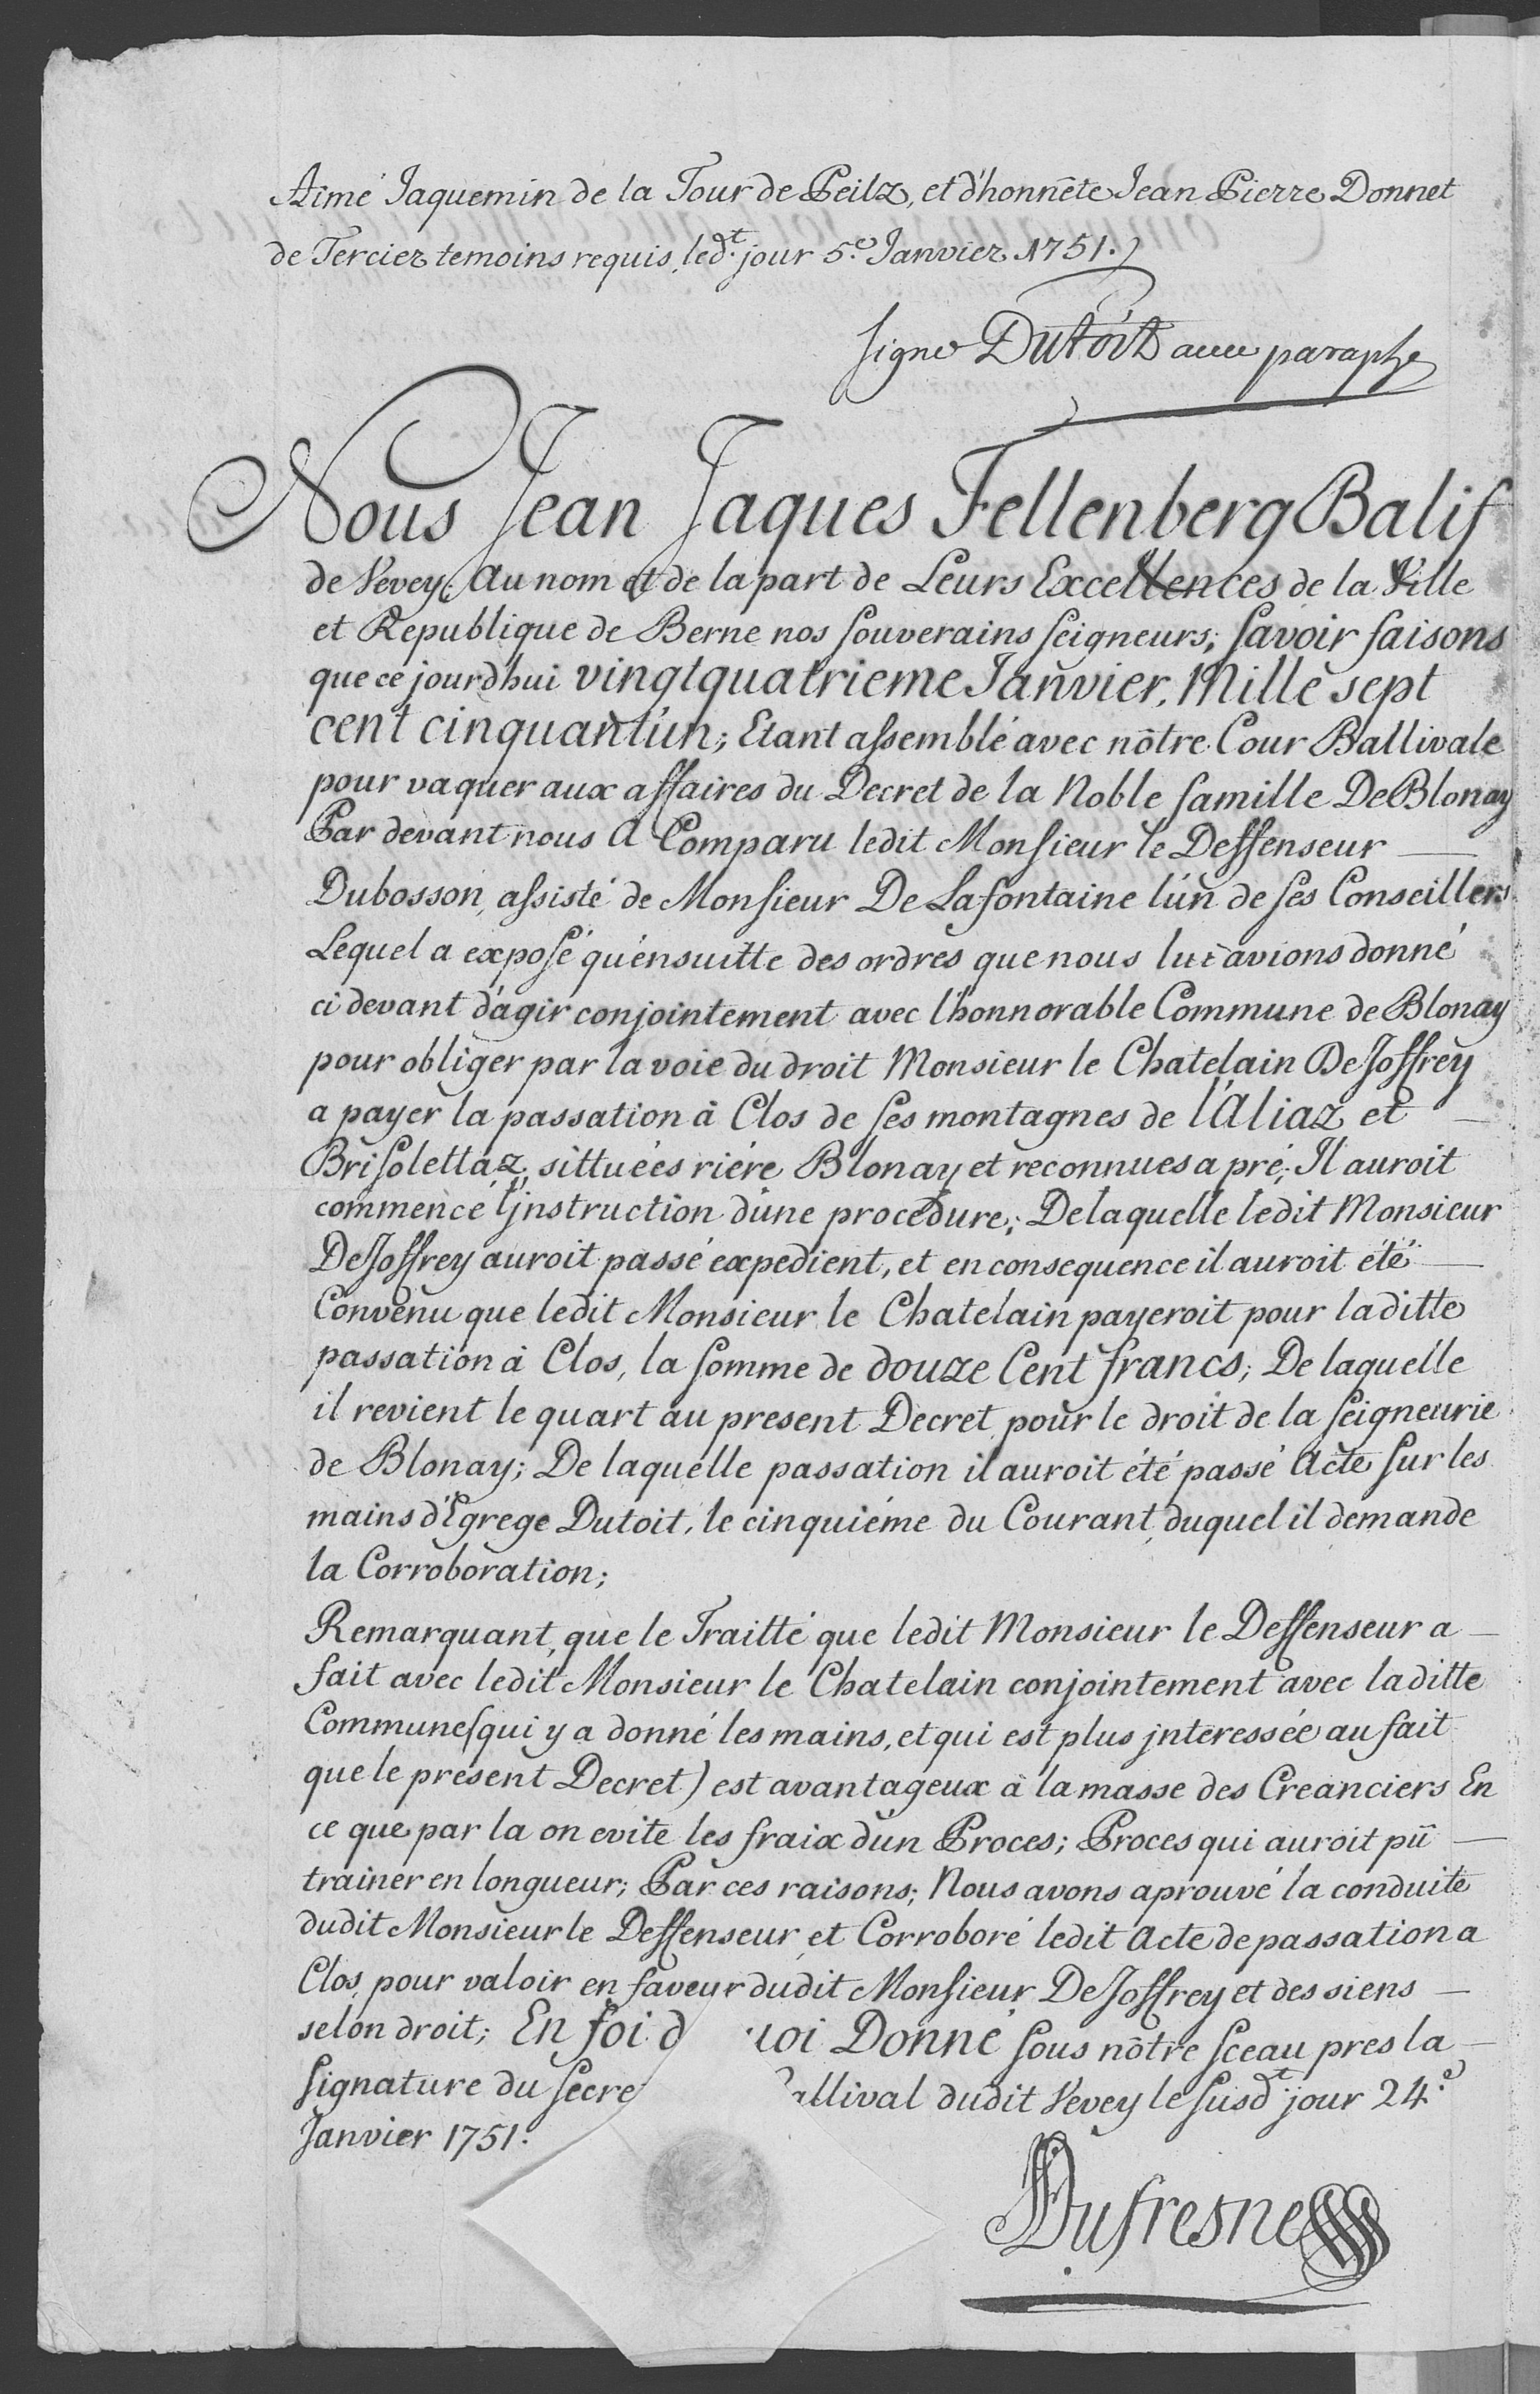 Aimé Jaquemin de la Tour de Peilz, et d'honnête Jean Pierre Donnet
de Tercier temoins requis, led.t jour 5.e Janvier 1751.)
signé Dutoit avec paraphe
Nous Jean Jaques Fellenberg Balif
de Vevey; Au nom et de la part de Leurs Excellences de la Ville
et Republique de Berne nos souverains seigneurs; savoir faisons
que ce jourdhui vingtquatrieme Janvier, Mille sept
cent cinquant'un; Etant assemblé avec nôtre Cour Ballivale
pour vaquer aux affaires du Decret de la Noble famille DeBlonay
Par devant nous A Comparu ledit Monsieur le Deffenseur —
Dubosson, assisté de Monsieur De Lafontaine l'un de ses Conseillers
Lequel a exposé qu'ensuitte des ordres que nous lui avions donné
ci devant d'agir conjointement avec l'honnorable Commune de Blonay
pour obliger par la voie du droit Monsieur le Chatelain DeJoffrey
a payer la passation à Clos de ses montagnes de l'Aliaz et —
Brisolettaz, sittuées riére Blonay et reconnues a pré; Il auroit
commencé l'jnstruction d'une procedure; De laquelle ledit Monsieur
DeJoffrey auroit passé expedient, et en consequence il auroit été —
Convenu que ledit Monsieur le Chatelain payeroit pour laditte
passation à Clos, la somme de douze Cent francs; De laquelle
il revient le quart au present Decret pour le droit de la seigneurie
de Blonay; De laquelle passation il auroit été passé Acte sur les
mains d'Egrege Dutoit, le cinquiéme du Courant, duquel il demande
la Corroboration;
Remarquant, que le Traitté que ledit Monsieur le Deffenseur a —
fait avec ledit Monsieur le Chatelain conjointement avec laditte
Commune (qui y a donné les mains, et qui est plus jnteressée au fait
que le present Decret) est avantageux à la masse des Creanciers En
ce que par la on evite les fraix d'un Proces; Proces qui auroit pû —
trainer en longueur; Par ces raisons; Nous avons aprouvé la conduite
dudit Monsieur le Deffenseur et Corroboré ledit Acte de passation a
Clos, pour valoir en faveur dudit Monsieur DeJoffrey et des siens —
selon droit; En foi d uoi Donné sous nôtre sceau pres la —
signature du secre allival dudit Vevey le susd.t jour 24.e
Janvier 1751.
Dufresne